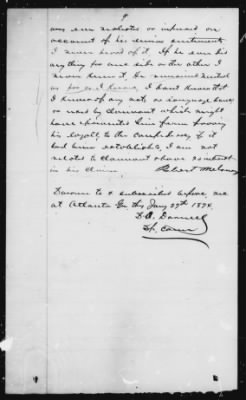 any one molested or injured on
account of his union sentiments
I never heard of it. If he ever did
any thing for one side or the other I
never knew it. He remained neutral
as far as I know, I don't know that
I know of any acts or language done
or used by claimant which might
have prevented him from proving
his loyalty to the confederacy if it
had been established, I am not
related to claimant or have no interest
in his claim. Robert
Sworn to & subscribed before me
at Atlanta Ga this Jany 27th 1874